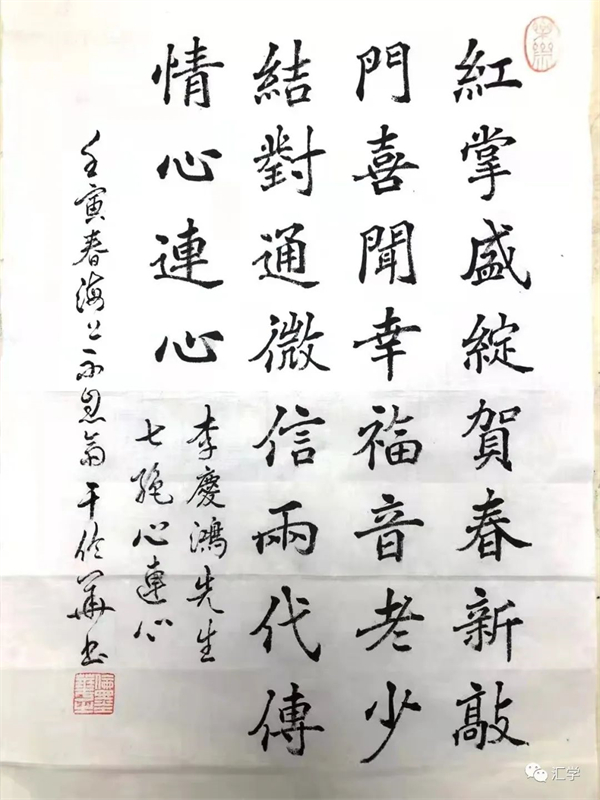 紅掌盛綻賀春新敲
門喜聞幸福音老少
結對通微信兩代傳
情心連心
李慶鴻先生
七絕心連心
壬寅春海上不息翁干
華书
汇学